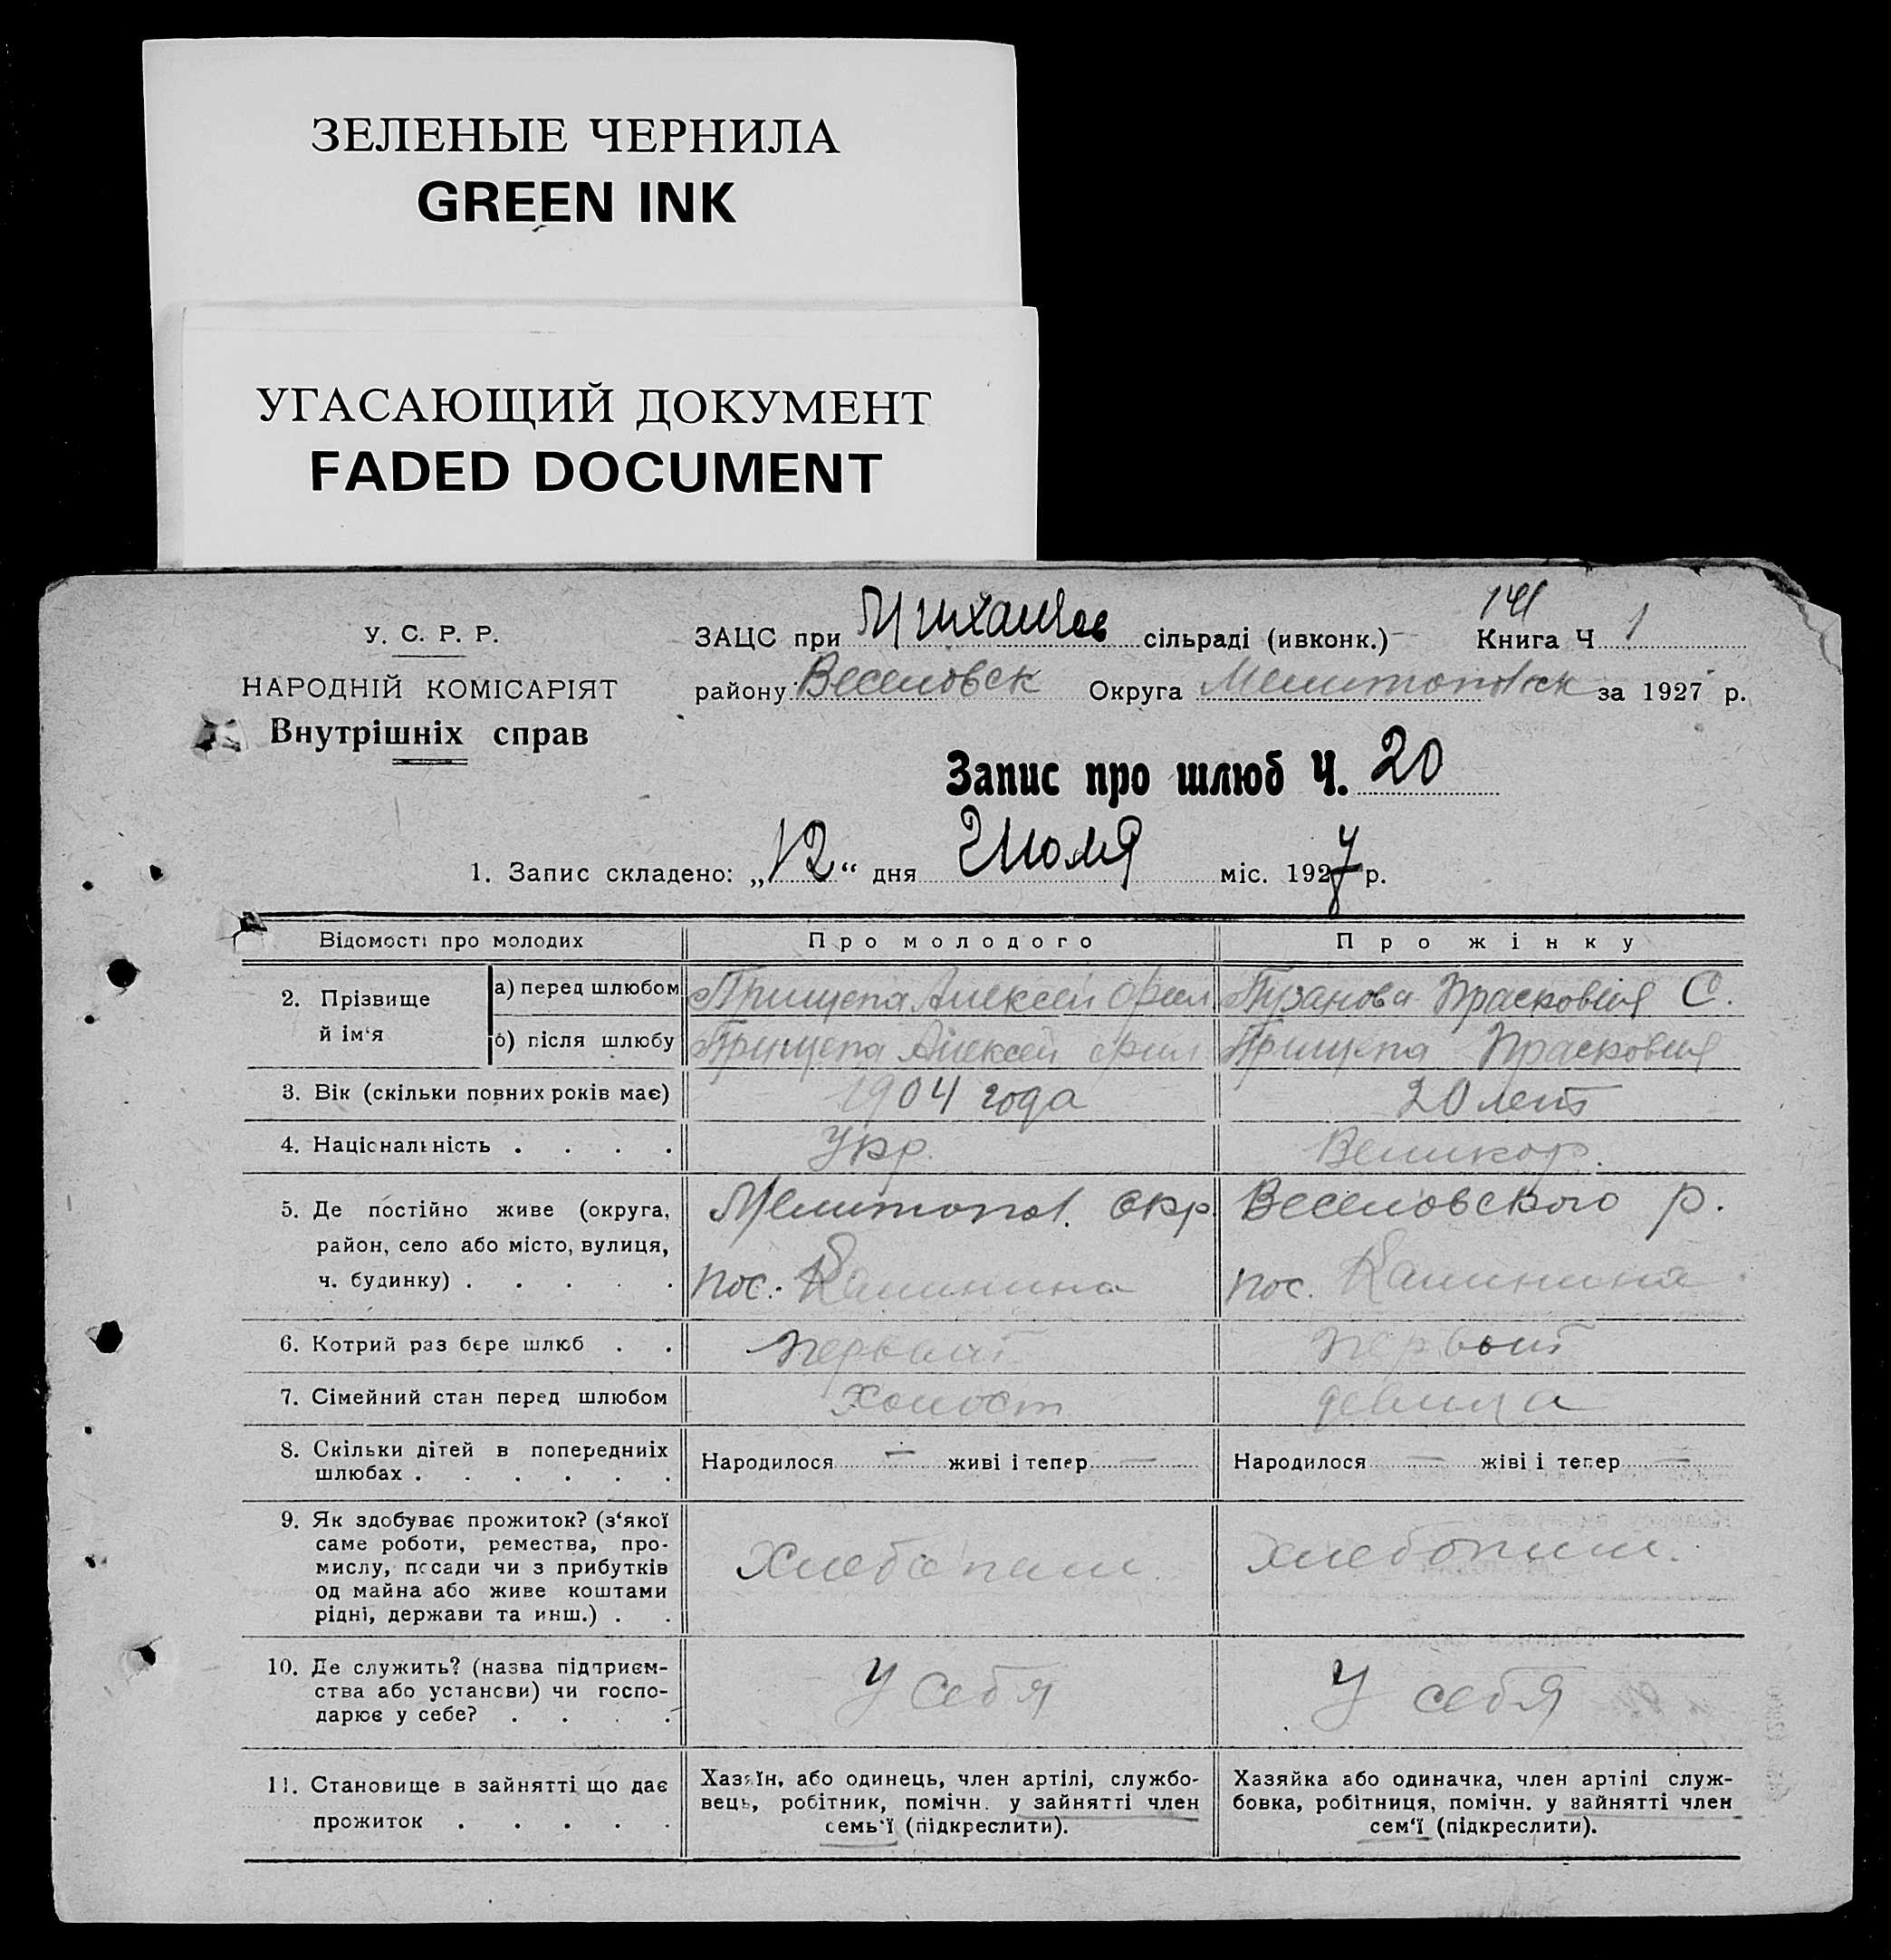 ЗЕЛЕНЫЕ ЧЕРНИЛА
GREEN INK
УГАСАЮЩИЙ ДОКУМЕНТ
FADED DOCUMENT
141
У. С. Р. Р.
ЗАЦС при Михайлов сільраді (ивконк.) Книга Ч 1
НАРОДНІЙ КОМІСАРІЯТ
району Веселовск Округа Мелитопольск за 1927 р.
Внутрішніх справ
Запис про шлюб Ч. 20
1. Запис складено: „12“ дня Июля міс. 1927 р.
Відомості про молодих
Про молодого
Про жінку
2. Прізвище й ім‘я
а) перед шлюбом
Прищепа Алексей Фил
Пузанова Прасковия С.
б) після шлюбу
Прищепа Алексей Фил
Прищепа Прасковия
3. Вік (скільки повних років має)
1904 года
20 лет
4. Національність . . . .
Укр.
Великор.
5. Де постійно живе (округа,
район, село або місто, вулиця,
ч. будинку) . . . . .
Мелитопол. окр.
Веселовского р.
пос. Калинина
пос. Калинина
6. Котрий раз бере шлюб . .
первый
первый
7. Сімейний стан перед шлюбом
холост
девица
8. Скільки дітей в попередниіх
шлюбах . . . . . .
Народилося — живі і тепер —
Народилося — жіві і тепер —
9. Як здобуває прожиток? (з‘якої
саме роботи, ремества, про-
мислу, посади чи з прибутків
од майна або живе коштами
рідні, держави та инш.) . .
Хлебопаш.
Хлебопаш.
10. Де служить? (назва підприєм-
ства або установи) чи госпо-
дарює у себе? . . . .
У себя
У себя
11. Становище в зайнятті що дає
прожиток . . . . .
Хазяїн, або одинець, член артілі, службо-
вець, робітник, помічн. у зайнятті член
семь‘ї (підкреслити).
Хазяйка або одиначка, член артілі служ-
бовка, робітниця, помічн. у зайнятті член
сем‘ї (підкреслити).